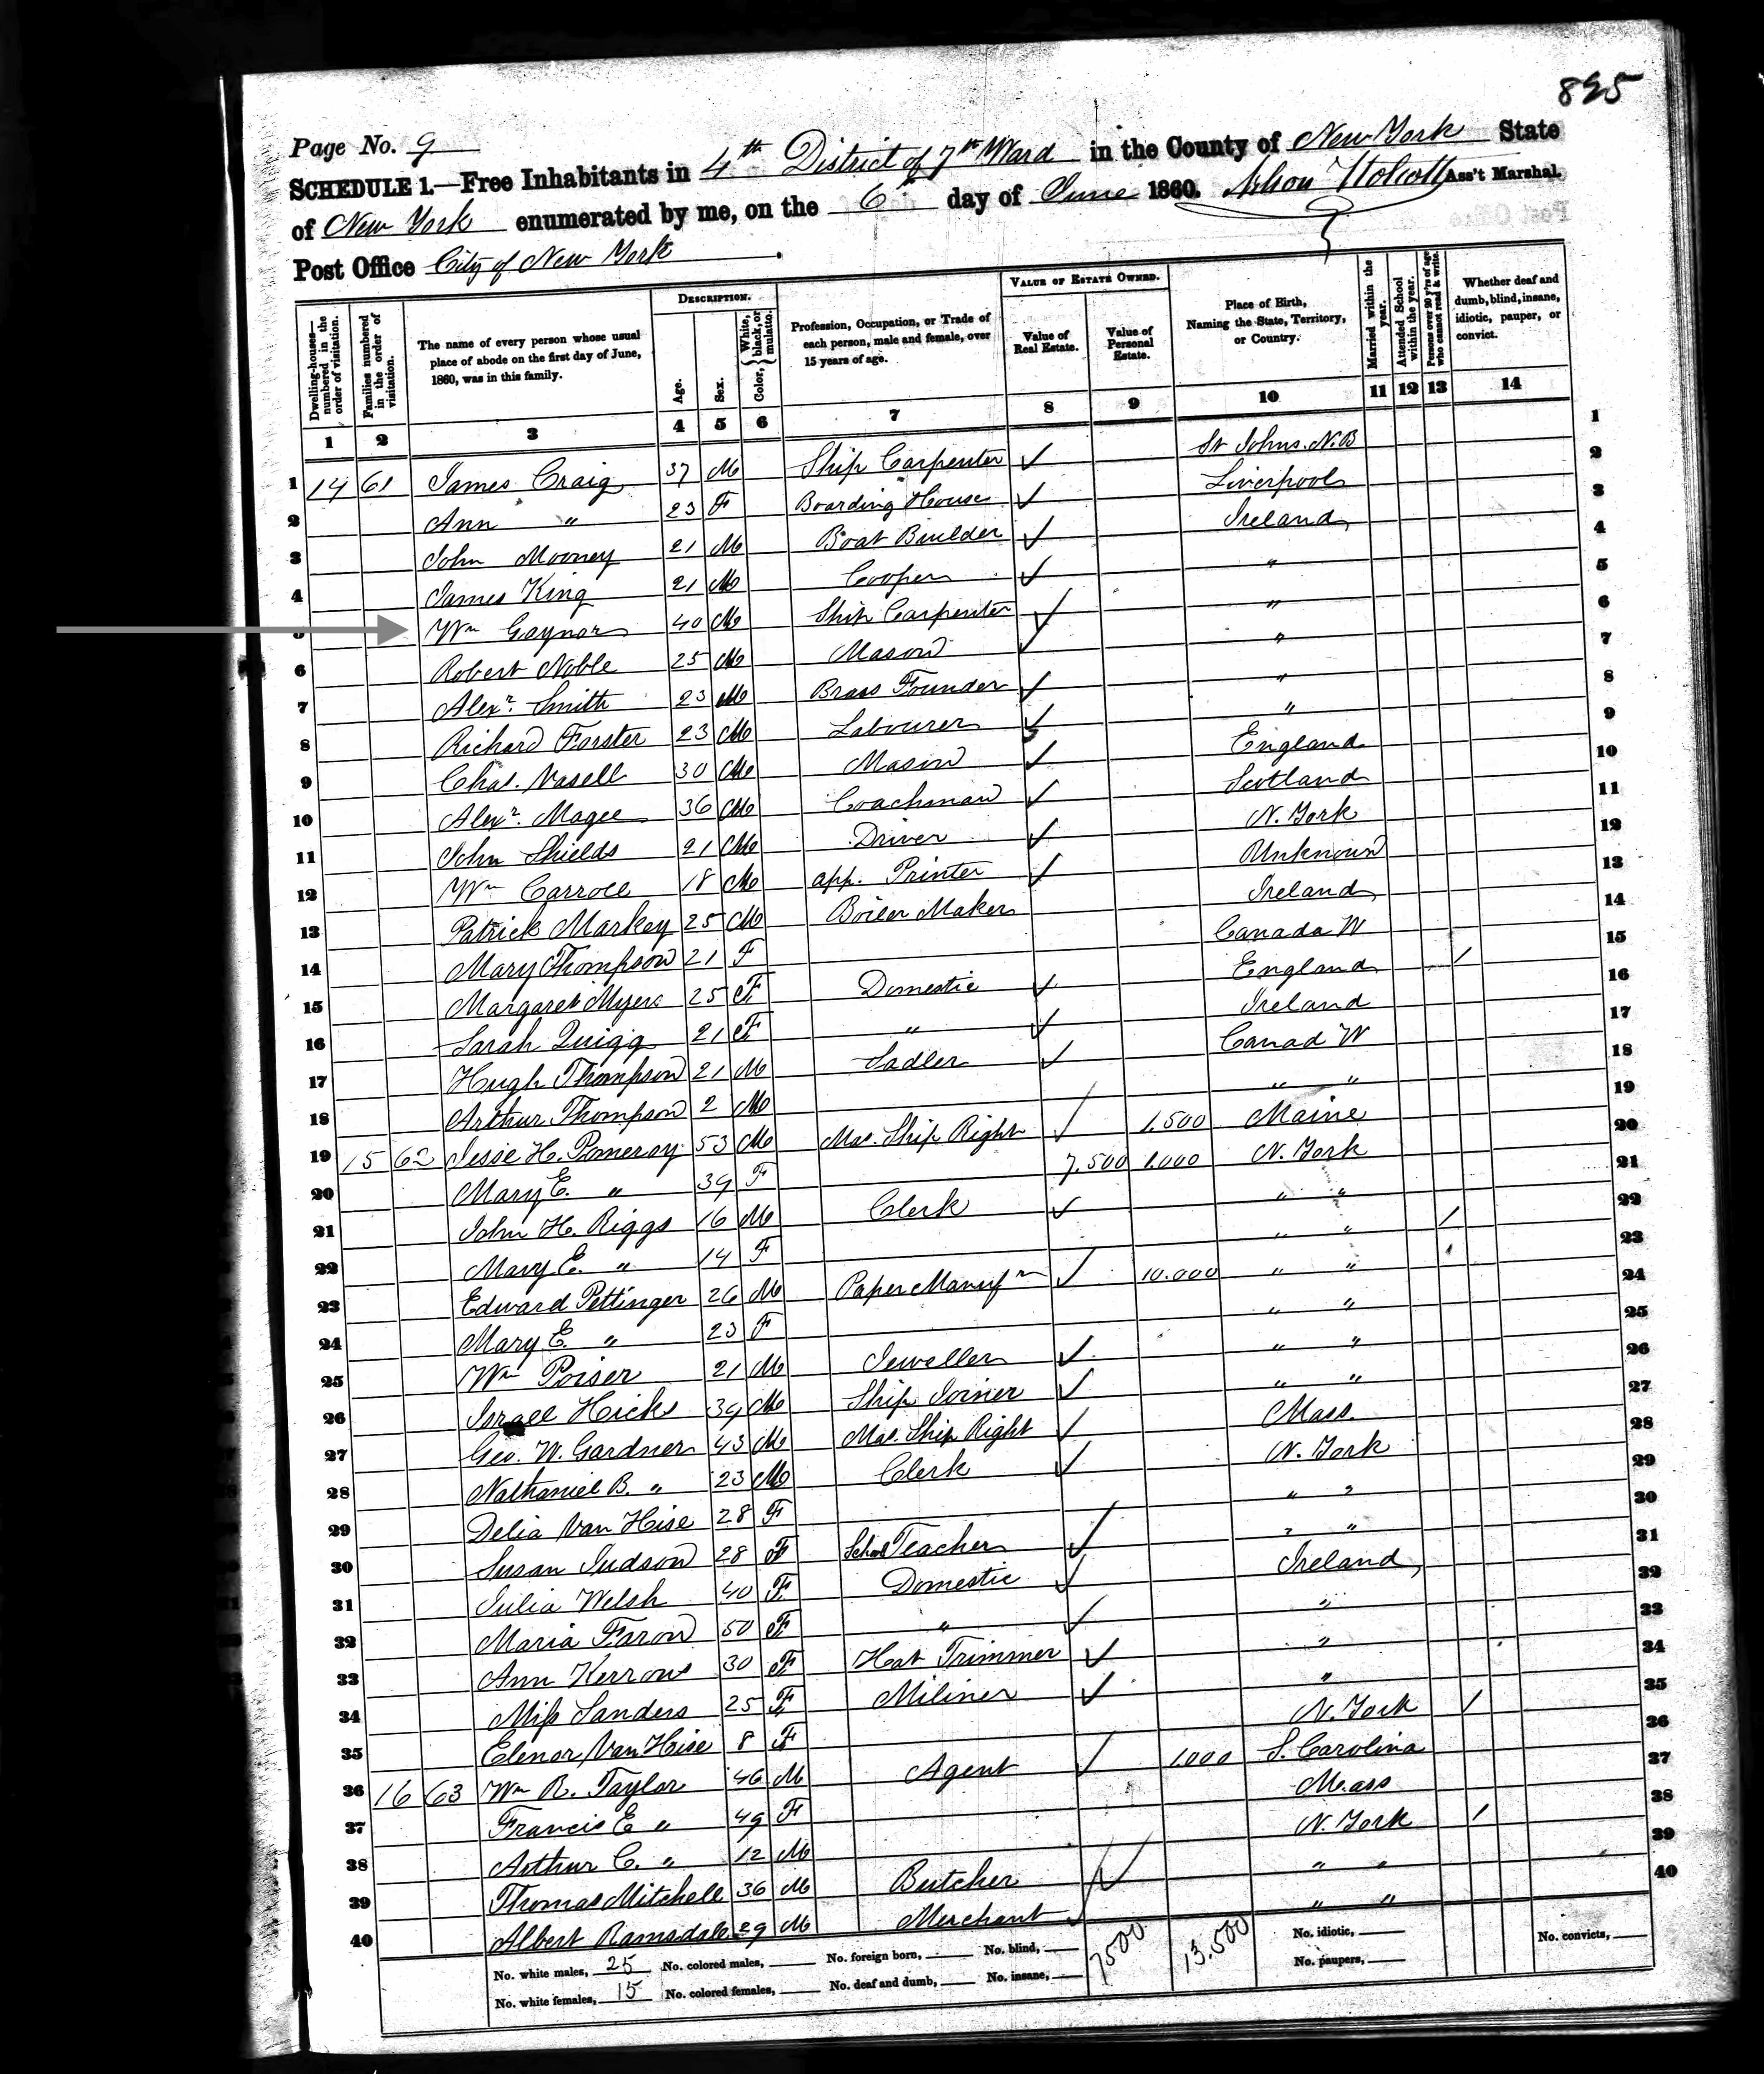 895
Page No. 9
SCHEDULE 1.—Free Inhabitants in 4th District of 7th Ward in the County of New York State
of New York enumerated by me, on the 6th day of June 1860. Ass't Marshal.
Post Office City of New York.
DESCRIPTION. VALUE OF ESTATE OWNED.
Dwelling-houses—numbered in the order of visitation. Families numbered in the order of visitation. The name of every person whose usual place of abode on the first day of June, 1860, was in this family. Age. Sex. Color, White, black, or mulatto. Profession, Occupation, or Trade of each person, male and female, over 15 years of age. Value of Real Estate. Value of Personal Estate. Place of Birth, Naming the State, Territory, or Country. Married within the year. Attended School within the year. Persons over 20 y'rs of age who cannot read & write. Whether deaf and dumb, blind, insane, idiotic, pauper, or convict.
1 2 3 4 5 6 7 8 9 10 11 12 13 14
1 14 61 James Craig 37 M Ship Carpenter ✓ St Johns. N.B 1
2 Ann " 23 F Boarding House ✓ Liverpool 2
3 John Mooney 21 M Boat Builder ✓ Ireland 3
4 James King 21 M Cooper ✓ " 4
5 Wm Gaynor 40 M Ship Carpenter ✓ " 5
6 Robert Noble 25 M Mason ✓ " 6
7 Alexr. Smith 23 M Brass Founder ✓ " 7
8 Richard Forster 23 M Labourer ✓ " 8
9 Chas. Vasell 30 M Mason ✓ England 9
10 Alexr. Magee 36 M Coachman ✓ Scotland 10
11 John Shields 21 M Driver ✓ N. York 11
12 Wm Carroll 18 M app. Printer ✓ Unknown 12
13 Patrick Markey 25 M Boiler Maker Ireland 13
14 Mary Thompson 21 F Canada W 14
15 Margaret Myers 25 F Domestic ✓ England / 15
16 Sarah Quigg 21 F " ✓ Ireland 16
17 Hugh Thompson 21 M Sadler ✓ Canad W 17
18 Arthur Thompson 2 M " " 18
19 15 62 Jesse H. Pomeroy 53 M Mas. Ship Right ✓ 1,500 Maine 19
20 Mary E. " 39 F 7,500 1,000 N. York 20
21 John H. Riggs 16 M Clerk ✓ " " 21
22 Mary E. " 14 F " " / 22
23 Edward Pettinger 26 M Paper Manufr ✓ 10.000 " " 23
24 Mary E. " 23 F " " 24
25 Wm Poiser 21 M Jeweller ✓ " " 25
26 Israel Hicks 39 M Ship Joiner ✓ " " 26
27 Geo. W. Gardner 43 M Mas. Ship Right ✓ Mass. 27
28 Nathaniel B. " 23 M Clerk ✓ N. York 28
29 Delia Van Hise 28 F " " 29
30 Susan Judson 28 F School Teacher ✓ " " 30
31 Julia Welsh 40 F Domestic ✓ Ireland 31
32 Maria Faron 50 F " ✓ " 32
33 Ann Kerrows 30 F Hat Trimmer ✓ " 33
34 Miss Sanders 25 F Miliner ✓ " 34
35 Elenor Van Hise 8 F N. York / 35
36 16 63 Wm R. Taylor 46 M Agent ✓ 1.000 S. Carolina 36
37 Francis E " 49 F Mass 37
38 Arthur C. " 12 M N. York / 38
39 Thomas Mitchell 36 M Butcher ✓ " " 39
40 Albert Ramsdale 29 M Merchant ✓ " " 40
No. white males, 25 No. colored males, No. foreign born, No. blind, 7500 13,500 No. idiotic, No. convicts,
No. white females, 15 No. colored females, No. deaf and dumb, No. insane, No. paupers,